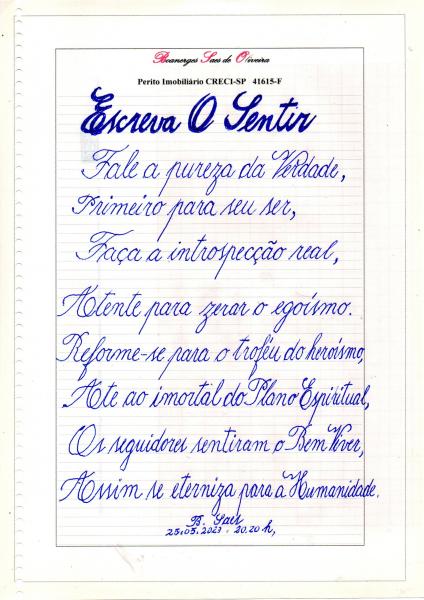 Boanerges Saes de Oliveira
Perito Imobiliário CRECI-SP 41615-F
Escreva O Sentir
Fale a pureza da Verdade,
Primeiro para seu ser,
Faça a introspecção real,
Atente para zerar o egoísmo.
Reforme-se para o troféu do heroísmo,
Ate ao imortal do Plano Espiritual,
Os seguidores sentiram o Bem Viver,
Assim se eterniza para a Humanidade.
B. Saes
25.05.2023 - 20.20 h,